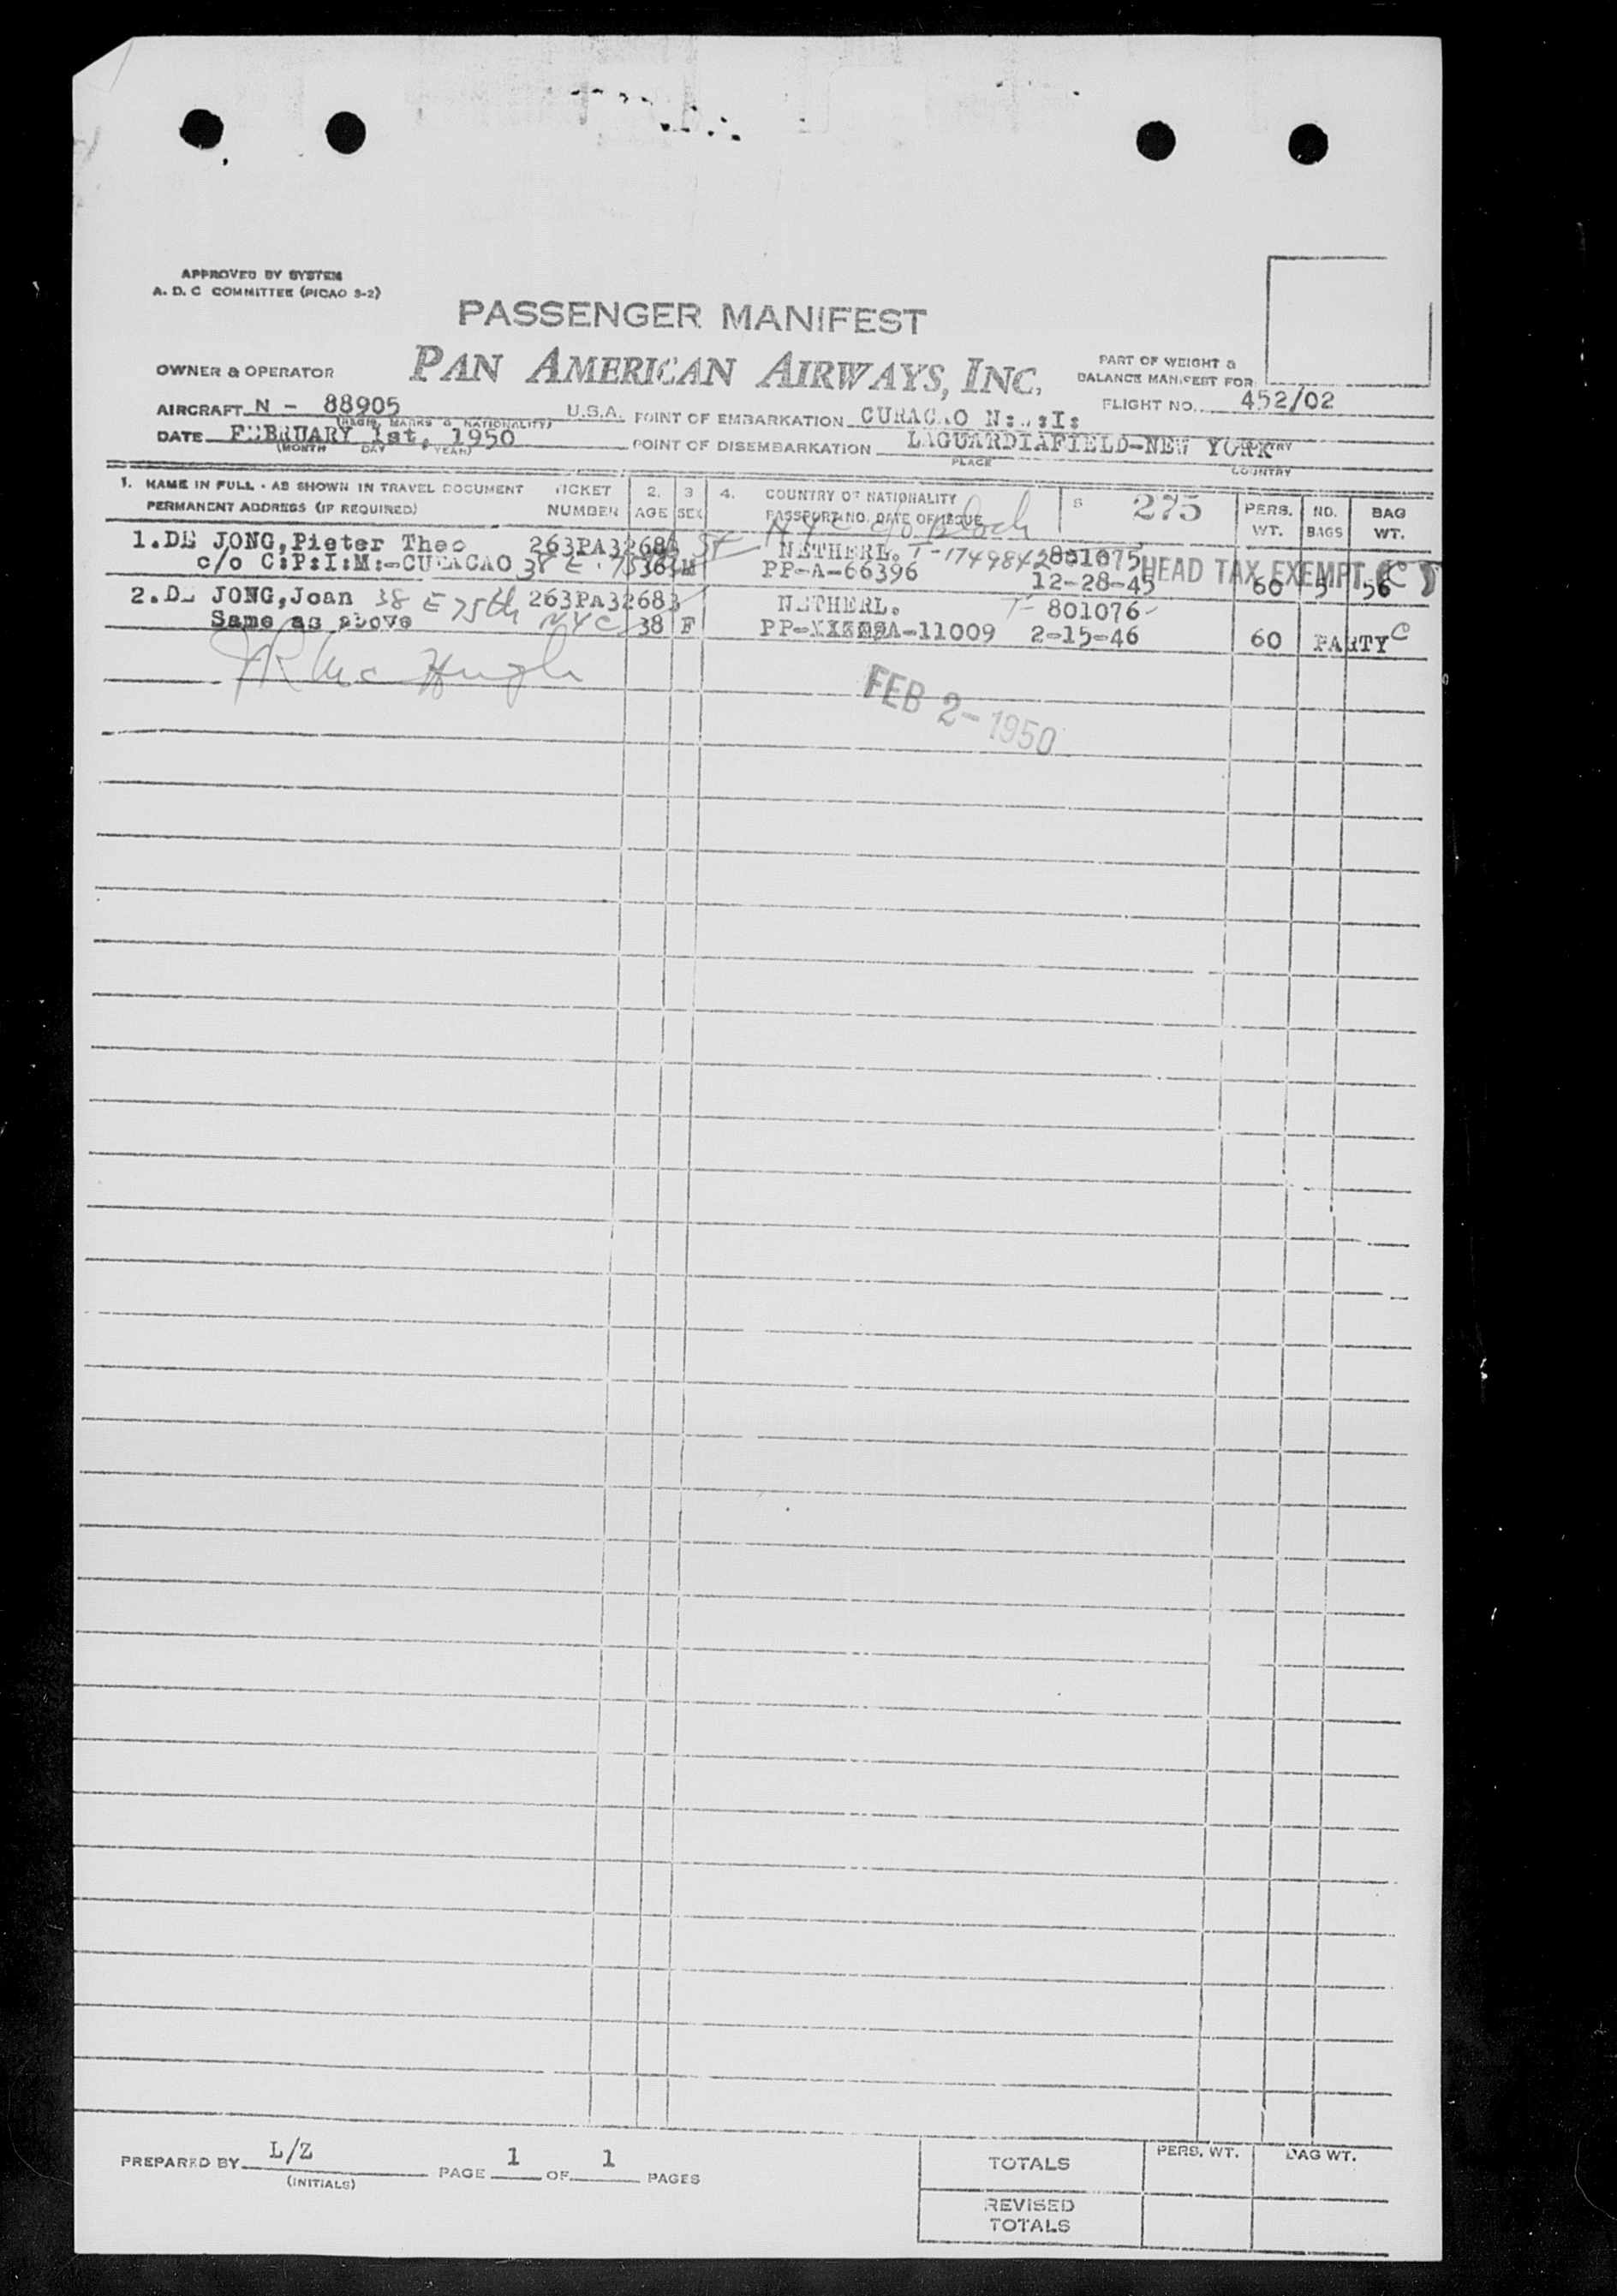 APPROVED BY SYSTEM
A. D. C COMMITTEE (PICAO S-2)
PASSENGER MANIFEST
OWNER & OPERATOR PAN AMERICAN AIRWAYS, INC.
PART OF WEIGHT &
BALANCE MANIFEST FOR
FLIGHT NO. 452/02
AIRCRAFT N - 88905 U.S.A. POINT OF EMBARKATION CURACAO N: :I:
(REGIS. MARKS & NATIONALITY)
DATE FEBRUARY 1st, 1950 POINT OF DISEMBARKATION LAGUARDIAFIELD-NEW YORK
(MONTH DAY YEAR) PLACE COUNTRY
1. NAME IN FULL - AS SHOWN IN TRAVEL DOCUMENT TICKET 2. 3 4. COUNTRY OF NATIONALITY S 275 PERS. NO. BAG
PERMANENT ADDRESS (IF REQUIRED) NUMBER AGE SEX PASSPORT NO. DATE OF ISSUE WT. BAGS WT.
NYC c/o
1. DE JONG, Pieter Theo 263PA32684 St NETHERL. T-1749842 801075 HEAD TAX EXEMPT
c/o C:P:I:M:-CURACAO 38 E. 75 36 M PP-A-66396 12-28-45 60 5 56 C
2. DE JONG, Joan 38 E 75th 263PA32683 NETHERL. T- 801076
Same as above NYC 38 F A-11009 2-15-46 60 PARTY C
JR McHugh
FEB 2-1950
PREPARED BY L/Z PAGE 1 OF 1 PAGES
(INITIALS)
TOTALS PERS. WT. BAG WT.
REVISED
TOTALS